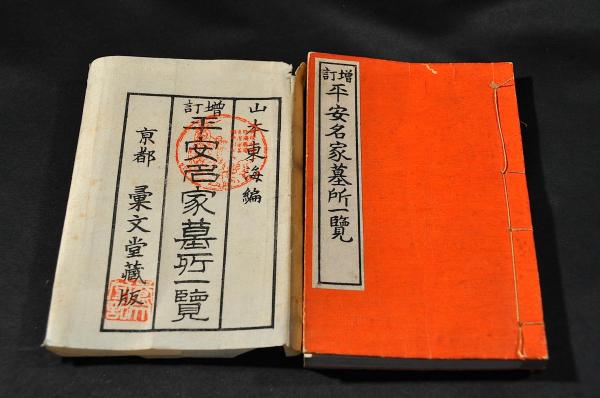 山本東海編
増訂
平安名家墓所一覧
京都 彙文堂藏版
増訂
平安名家墓所一覧